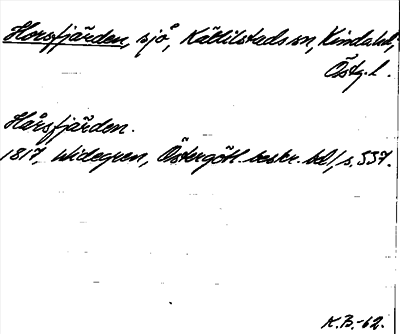 Horsfjärden, sjö, Kättilstads sn, Kinda hd,
Östg. l.
Hårsfjärden.
1817, Widegren, Östergötl. beskr. bd 1, s. 337.
K.B.-62.